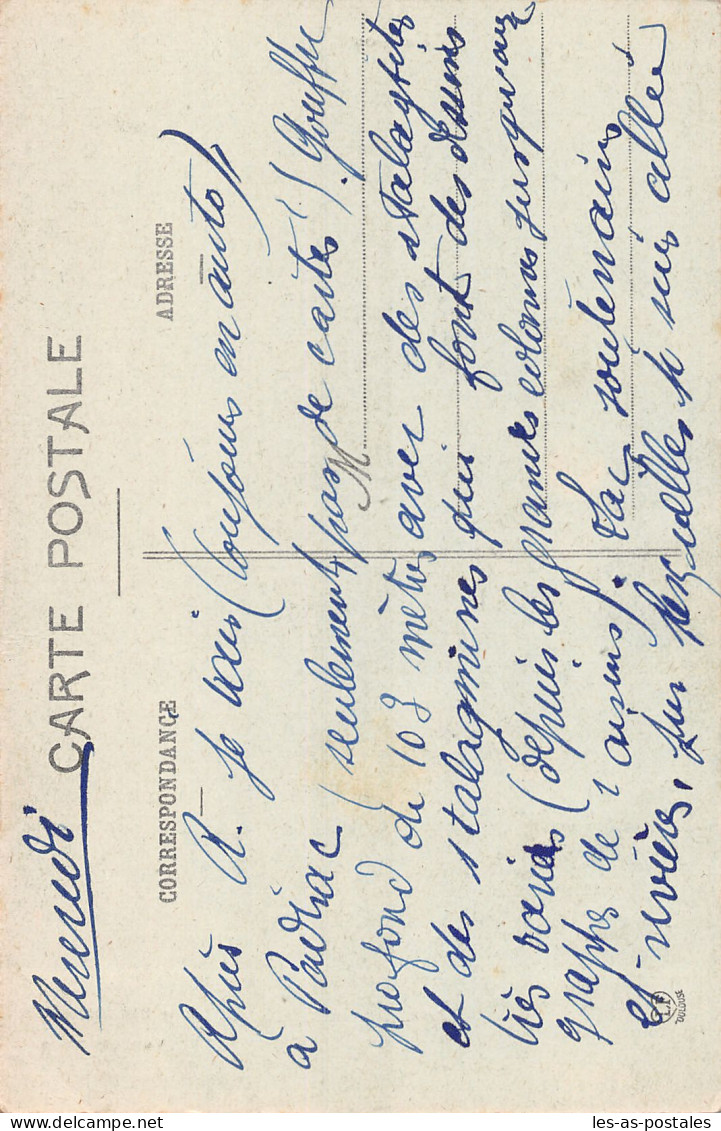 Mercredi
CARTE POSTALE
CORRESPONDANCE
ADRESSE
Après R. je vais (toujours en auto)
à Padirac (seulement pas de cartes!) Gouffre
profond de 103 mètres avec des stalagtites
et des stalagmines qui font des dessins
très variés (depuis les grandes colonnes jusqu'aux
grappes de raisins). Lac souterrain
et rivière, sur lesquelles je suis allée
TOULOUSE
les-as-postales